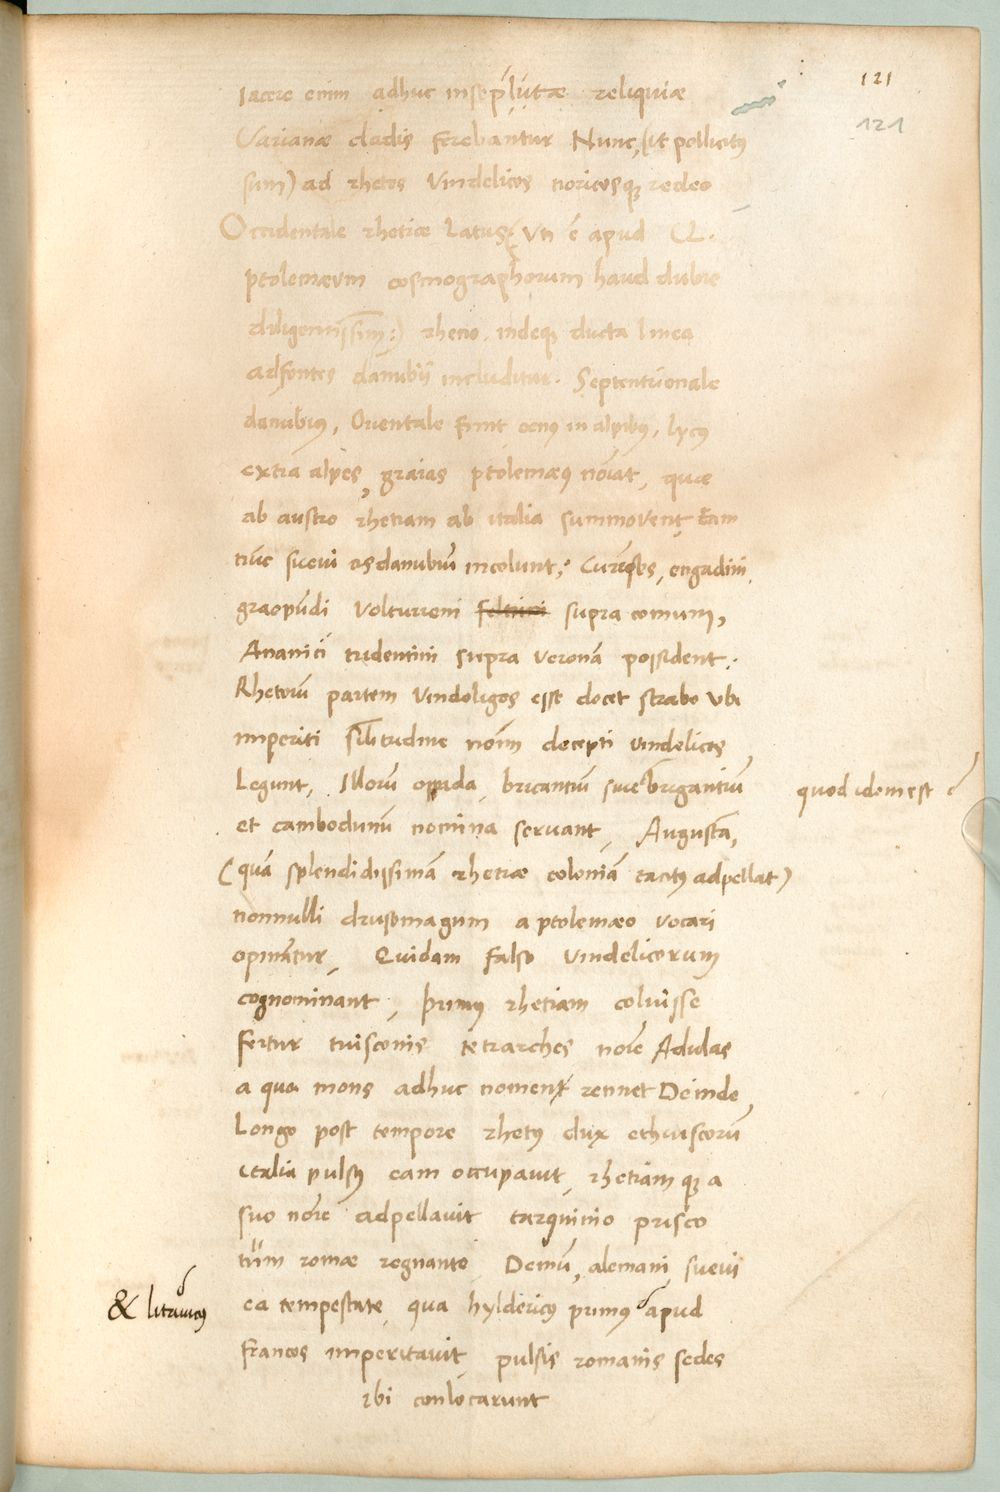 121
121
Iacere enim adhuc insepultæ reliquiæ
Varianæ cladis ferebantur Nunc, (ut pollicitꝰ
sum) ad rhetos Vindelicos noricosqꝫ redeo
Occidentale rhetiæ Latus (Vti ē apud CL.
ptolemæum cosmographorum haud dubie
diligentissim:) rheno, indeqꝫ ducta linea
ad fontes danubii includitur. Septentrionale
danubiꝰ, Orientale finit oenꝰ in alpibꝰ, lycꝰ
extra alpes, graias ptolemæꝰ nōiat, quæ
ab austro rhetiam ab italia summovent, Eam
nūc suevi as danubiū incolunt; engadini,
graopūdi Volturreni feltrini supra comum,
Ananicii tridentini supra veronā possident.
Rhetorū partem Vindoligos esse docet strabo ubi
imperiti sīlitudine noīm decepti vindelicos
Legunt, Illorū oppida, bricantiū sive brigantiū
quod idem est
et cambodunū nomina servant, Augusta,
(quā splendidissimā rhetiæ coloniā tacitꝰ adpellat)
nonnulli drusomagum a ptolemæo vocari
opinātur, Quidam falso vindelicorum
cognominant, primꝰ rhetiam coluisse
fertur tuisconis tetrarches noīe Adulas
a quo mons adhuc nomen retinet Deinde,
Longo post tempore rhetꝰ dux ethruscorū
italia pulsꝰ eam occupavit, rhetiamqꝫ a
suo noīe adpellavit tarquinio prisco
tūm romæ regnante, Demū, alemani, suevi
ea tempestate, qua hyldericꝰ primꝰ apud
& litavicus
francos imperitavit, pulsis romanis sedes
ibi conlocarunt